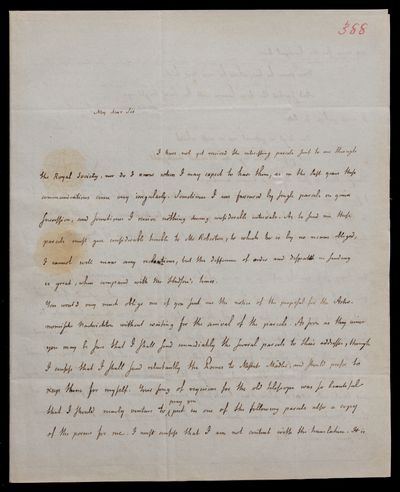 388
My dear Sir
I have not yet received the interesting parcels sent to me through
the Royal Society, nor do I know when I may expect to have them, as in the last years these
communications came very irregularly. Sometimes I was favoured by single parcels on given
occasions, and sometimes I receive nothing during considerable intervals. As to send me these
parcels must give considerable trouble to Mr Roberton, to which he is by no means obliged,
I cannot well make any, but the difference of order and in sending
is great, when compared with Mr Hudson's times.
You would very much oblige me if you send me the notice of the proposal for the Astro-
nomische Nachrichten without waiting for the arrival of the parcels. As soon as they arrive
you may be sure that I shall send immediately the several parcels to their addresses, though
I confess that I shall send reluctantly the Poems to Messrs Mädler, and should prefer to
keep them for myself. Your song of requiem for the old telescope was so beautiful
that I should nearly venture to pray you to put in one of the following parcels also a copy
of the poems for me. I must confess that I am not content with the translation. It is